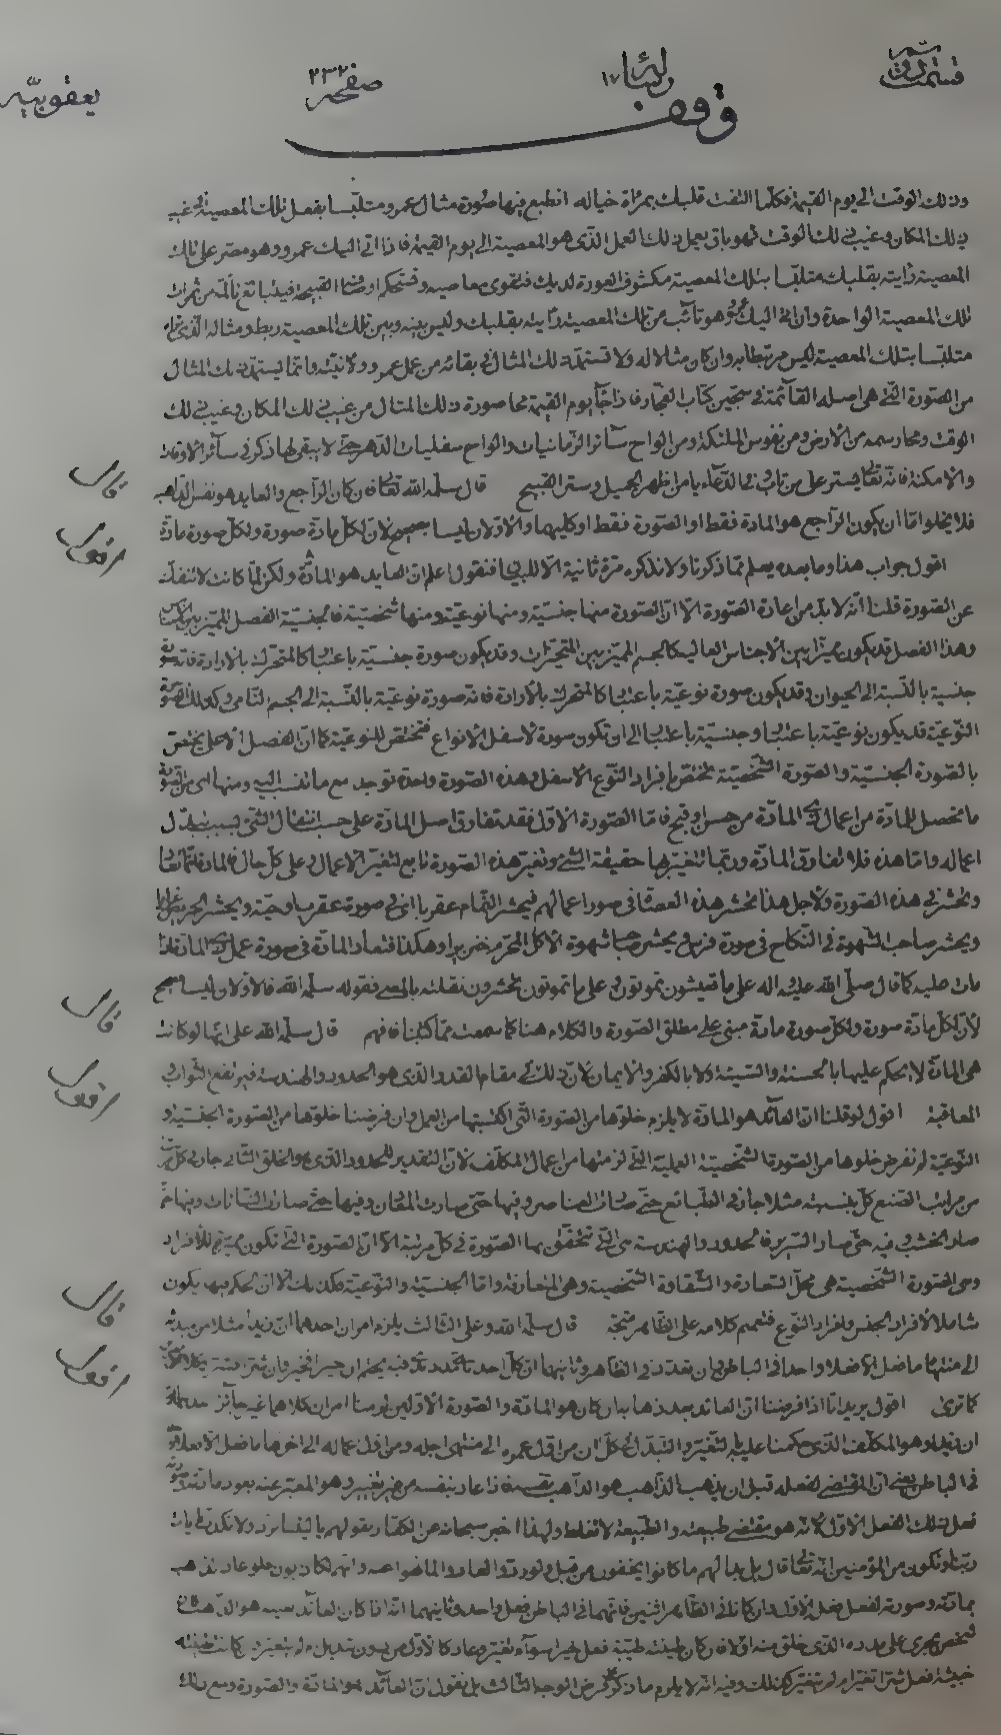 قسمت الرسم رسالة ١٧ صفحه ٢٣٢ يعقوبيّه
وقف
وذلك الوقت الى يوم القيمة فكلما التفت قلبك بمرآة خياله انطبع فيها صورة مثال عمرو متلبّسا بفعل تلك المعصية في غيب
ذلك المكان وغيب ذلك الوقت فهو باق يعمل ذلك العمل الذي هو المعصية الى يوم القيمة فاذا اتى اليك عمرو وهو مصر على تلك
المعصية رايته بقلبك متلبّسا بتلك المعصية مكشوف العورة لديك فتقوى معاصيه وتستحكم اوصافه القبيحة من ثمرات
تلك المعصية الواحدة وان اتى اليك وهو تائب من تلك المعصية رايته بقلبك وليس بينه وبين تلك المعصية ربط ومثاله الذي تراه
متلبّسا بتلك المعصية ليس مرتبطا به وان كان مثالا له ولا تستمد ذلك المثال في بقائه من عمل عمرو ولا نيّته وانما يستمد ذلك المثال
من الصّورة التّي هي اصله القآئمة في سجّين كتاب الفجّار فاذا جآء يوم القيمة محا صورة ذلك المثال من غيب ذلك المكان وغيب ذلك
الوقت ومحا رسمه من الارض ومن نفوس الملئكة ومن الواح سآئر الزّمانيات والواح سفليات الدّهر حتى لا يبقى لها ذكر في سآئر الاوقات
والامكنة فانّه تعالى يستر على من تاب في الدّعآء يا من اظهر الجميل وستر القبيح قال سلّمه الله تعالى فان كان الرّاجع والعايد هو نفس الذاهب
قال
فلا يخلوا امّا ان يكون الرّاجع هو المادة فقط او الصّورة فقط او كليهما والاوّلان ليسا بصحيح لان لكلّ مادّة صورة ولكلّ صورة مادّة
اقول
اقول جواب هذا وما بعده يعلم ممّا ذكرنا ولا نذكره مرّة ثانية الّا للبيان فنقول اعلم انّ العايد هو المادّة ولكن لمّا كانت لا تنفكّ
عن الصّورة قلنا انّه لا بدّ من اعادة الصّورة الّا انّ الصّورة منها جنسيّة ومنها نوعيّة ومنها شخصيّة فالجنسيّة الفصل المميّز بين الاجناس
وهذا الفصل قد يكون مميّزا بين الاجناس العالية كالجسم المميّز بين المتحيّزات وقد يكون صورة جنسيّة باعتبار كالمتحرّك بالارادة فانّه صورة
جنسية بالنّسبة الى الحيوان وقد يكون صورة نوعيّة باعتبار كالمتحرّك بالارادة فانّه صورة نوعيّة بالنّسبة الى الجسم النّامي وكذلك الصّورة
النّوعيّة قد يكون نوعيّة باعتبار وجنسيّة باعتبار الى ان تكون صورة لاسفل الانواع فتختصّ للنوعيّة كما انّ الفصل الاعلى يختصّ
بالصّورة الجنسيّة والصّورة الشّخصيّة تختصّ بافراد النّوع الاسفل وهذه الصّورة واحدة توجد مع ما تنسب اليه ومنها
ما تحصل للمادّة من اعمال المادّة من حسن او قبح فامّا الصّورة الاولى فقد تفارق اصل المادّة على حسب انتقال الشّيء بسبب تبدّل
اعماله وامّا هذه فلا تفارق المادّة وربّما تتغيّر بها حقيقة الشيء وتغيّر هذه الصّورة تابع لتغيّر الاعمال وعلى كلّ حال فالمادة
وتحشر في هذه الصّورة ولاجل هذا تحشر هذه العصاة في صور اعمالهم فيحشر النّمّام عقربا اي في صورة عقرب او حيّة ويحشر الحريص غرابا
ويحشر صاحب الشهوة في النّكاح في صورة ويحشر صاحب شهوة الاكل المحرّم خنزيرا وهكذا فتعاد المادّة في صورة عمل المادّة
مات عليه كما قال صلّى الله عليه واله على ما تعيشون تموتون وعلى ما تموتون تحشرون نقلته بالمعنى فقوله سلّمه الله فالاوّلان ليسا بصحيح
قال
لانّ لكلّ مادّة صورة ولكلّ صورة مادّة مبنيّ على مطلق الصّورة والكلام هنا كما سمعت ممّا كتبنا فافهم قال سلّمه الله على انها لو كانت
هي المادّة لا يحكم عليها بالحسنة والسّيّئة ولا بالكفر والايمان لان ذلك في مقام القدر الذي هو الحدود والهندسة فيرتفع الثّواب و
اقول
المعاقبة اقول لو قلنا انّ العآئد هو المادّة لا يلزم خلوّها من الصّورة التي اكتسبتها من العمل وان فرضنا خلوّها من الصّورة الجنسيّة و
النّوعيّة لم نفرض خلوّها من الصّورة الشّخصيّة العمليّة التي لزمتها من اعمال المكلّف لانّ التقدير للحدود الذي هو الخلق الثّاني جار في كلّ
من مراتب الصّنع كلّ بنسبته مثلا جاز في الطّبائع حتّى صارت العناصر وفيها حتّى صارت المعادن وفيها حتّى صارت النّباتات وفيها حتّى
صار الخشب وفيه حتّى صار السّرير فالحدود والهندسة هي التي تتحقّق بها الصّورة في كلّ مرتبة الّا انّ الصّورة التي تكون مميّزة للافراد
وهي الصّورة الشّخصيّة هي محلّ السّعادة والشّقاوة الشّخصيّة وهي المتعارفة وامّا الجنسيّة والنّوعيّة فكذلك الّا انّ الحكم فيها يكون
قال
شاملا لافراد الجنس وافراد النّوع فتعميم كلامه على الظّاهر متّجه قال سلّمه الله وعلى الثّالث يلزم امران احدهما انّ زيدا مثلا من مبدئه
الى منتهاه ما فعل الّا فعلا واحدا في الباطن وان تعدّد في الظّاهر وثانيهما ان كلّ احد
اقول
كما ترى اقول يريد انّا اذا فرضنا انّ العائد بعد ذهابه ان كان هو المادّة والصّورة الاوّلين لزمنا امران كلاهما غير جآئز احدهما
ان زيدا وهو المكلّف الذي حكمنا عليه بالتّغيّر والتّبدّل كلّ ان من اوّل عمره الى منتهى اجله ومن اوّل عماله الى اخرها ما فعل الّا فعلا واحدا
في الباطن يعني انّ المقتضي لفعله قبل ان يذهب الذّاهب هو الذّاهب بنفسه فاذا عاد بنفسه من غير تغيير وهو المعبّر عنه بعود مادّته وصورته
فعل ذلك الفعل الاوّل لانّه هو مقتضى طبيعته والطّبيعة لا تغلط ولهذا اخبر سبحانه عن الكفّار بقولهم يا ليتنا نردّ ولا نكذّب بايات
ربّنا ونكون من المؤمنين انّه تعالى قال بل بدا لهم ما كانوا يخفون من قبل ولو ردّوا لعادوا لما نهوا عنه وانّهم لكاذبون فلو عاد بذهب
بمادّته وصورته لفعل فعله الاوّل وان كانا في الظّاهر اثنين فانّهما في الباطن فعل واحد وثانيهما انّه اذا كان العآئد بعينه هو الذّاهب
الشخص يجري على مدده الذي خلق منه اوّلا فان كان طينته طيّبة فعل خيرا سوآء تغيّر وعاد كالاوّل من دون تبديل ام لم يتغيّر وان كانت طينته
خبيثة فعل شرّا تغيّر ام لم يتغيّر كذلك وفيه انّه لا يلزم ما ذكره لفرض الوجه الثّالث بل نقول انّ العآئد هو المادّة والصّورة ومع ذلك